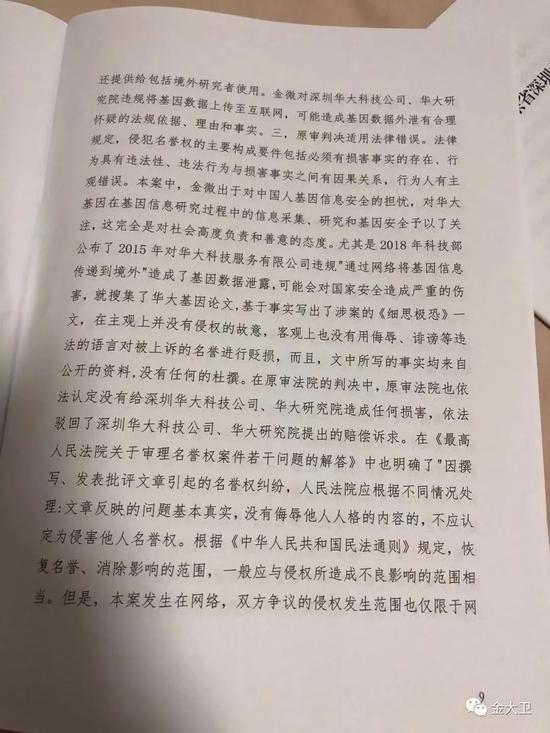 还提供给包括境外研究者使用。金微对深圳华大科技公司、华大研
究院违规将基因数据上传至互联网，可能造成基因数据外泄有合理
怀疑的法规依据、理由和事实。三，原审判决适用法律错误。法律
规定，侵犯名誉权的主要构成要件包括必须有损害事实的存在、行
为具有违法性、违法行为与损害事实之间有因果关系，行为人有主
观错误。本案中，金微出于对中国人基因信息安全的担忧，对华大
基因在基因信息研究过程中的信息采集、研究和基因安全予以了关
注，这完全是对社会高度负责和善意的态度。尤其是2018年科技部
公布了2015年对华大科技服务有限公司违规"通过网络将基因信息
传递到境外"造成了基因数据泄露,可能会对国家安全造成严重的伤
害，就搜集了华大基因论文,基于事实写出了涉案的《细思极恐》一
文，在主观上并没有侵权的故意，客观上也没有用侮辱、诽谤等违
法的语言对被上诉的名誉进行贬损，而且，文中所写的事实均来自
公开的资料,没有任何的杜撰。在原审法院的判决中，原审法院也依
法认定没有给深圳华大科技公司、华大研究院造成任何损害，依法
驳回了深圳华大科技公司、华大研究院提出的赔偿诉求。在《最高
人民法院关于审理名誉权案件若干问题的解答》中也明确了"因撰
写、发表批评文章引起的名誉权纠纷，人民法院应根据不同情况处
理:文章反映的问题基本真实，没有侮辱他人人格的内容的，不应认
定为侵害他人名誉权。根据《中华人民共和国民法通则》规定，恢
复名誉、消除影响的范围，一般应与侵权所造成不良影响的范围相
当。但是，本案发生在网络，双方争议的侵权发生范围也仅限于网
9
省深圳
金大卫